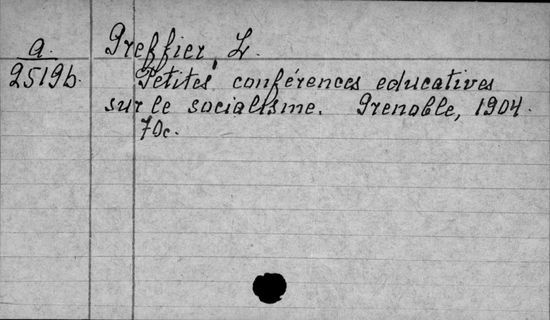 a. Greffier, L.
2519b. Petites conférences educatives
sur le socialisme. Grenoble, 1904.
70c.